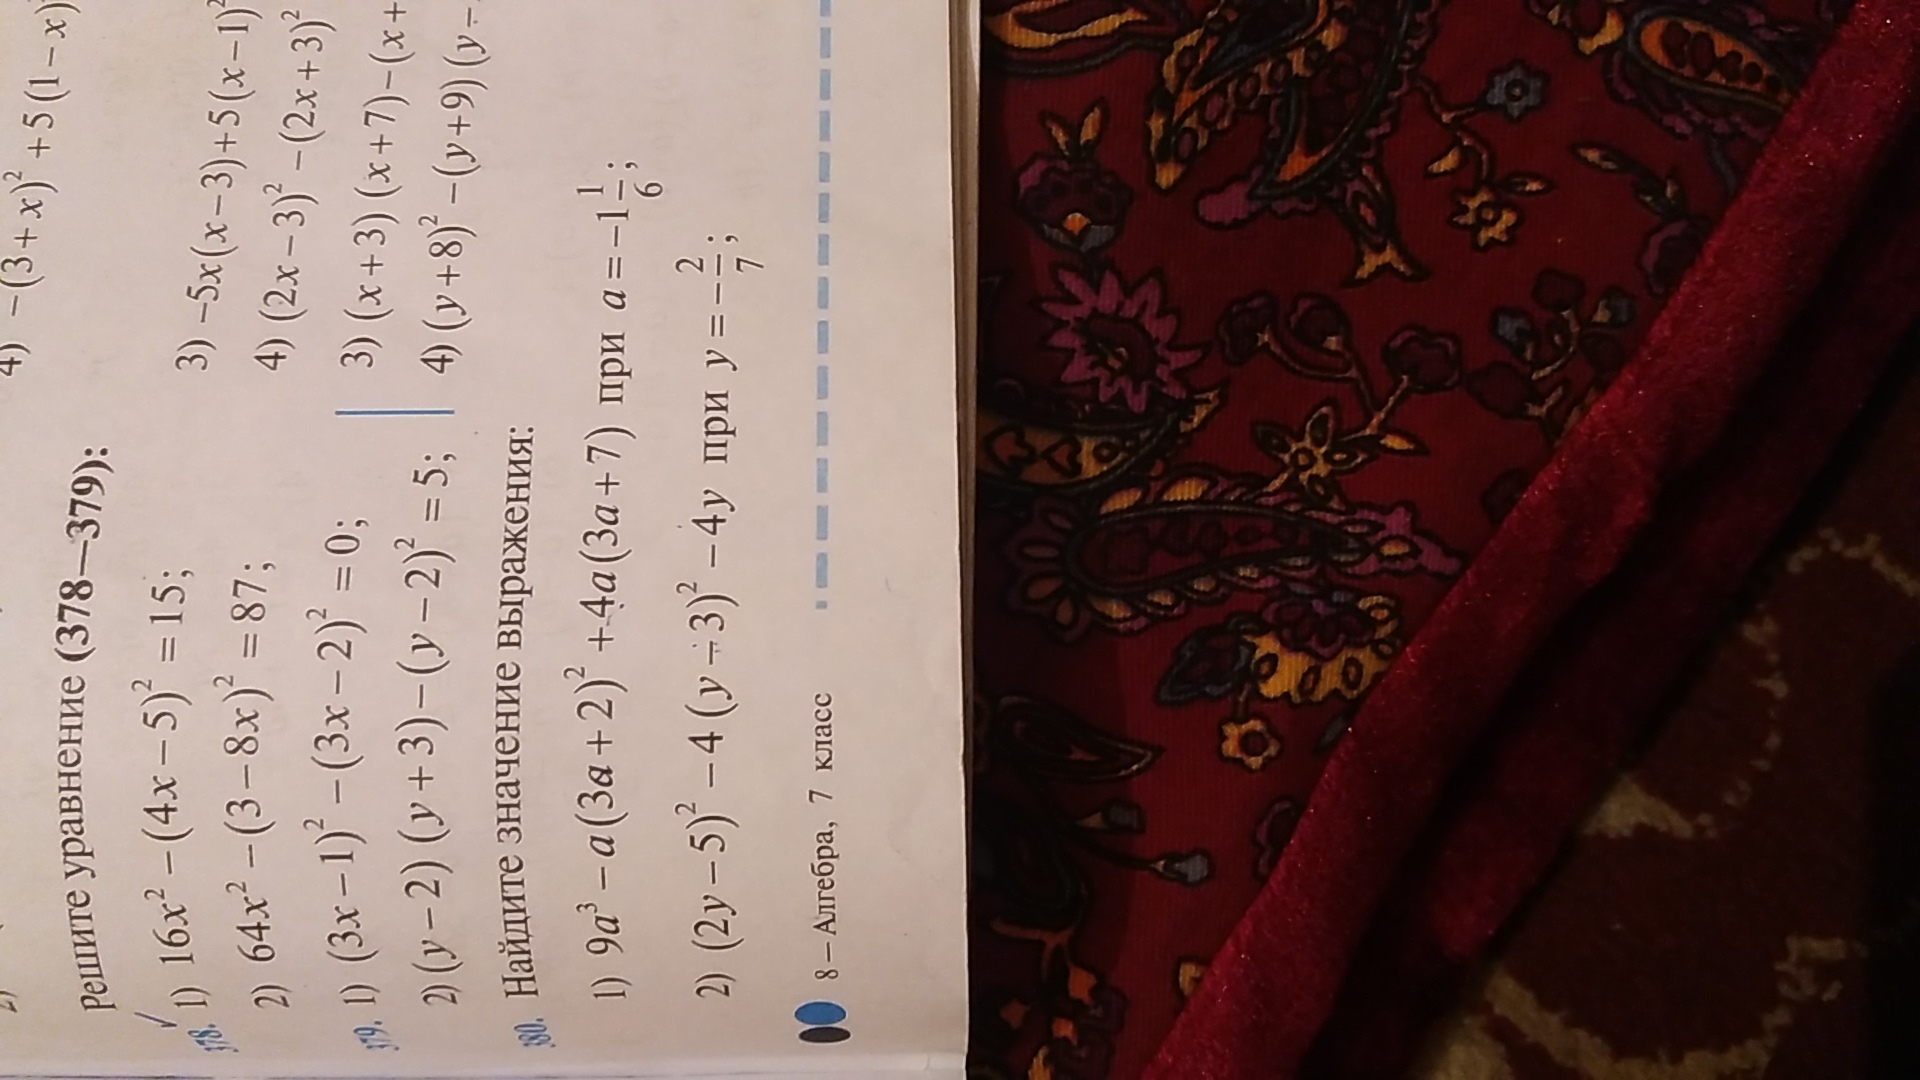 4) −(3+x)² +5(1−x)
Решите уравнение (378—379):
378. 1) 16x² −(4x−5)² =15; 3) −5x(x−3)+5(x−1)²
2) 64x² −(3−8x)² =87; 4) (2x−3)² −(2x+3)²
379. 1) (3x−1)² −(3x−2)² =0; 3) (x+3)(x+7)−(x+
2) (y−2)(y+3)−(y−2)² =5; 4) (y+8)² −(y+9)(y−
380. Найдите значение выражения:
1) 9a³ −a(3a+2)² +4a(3a+7) при a=−1 1/6;
2) (2y−5)² −4(y−3)² −4y при y=−2/7;
8 – Алгебра, 7 класс